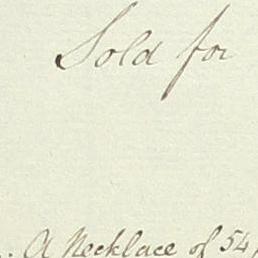 Sold for
. A Necklace of 54